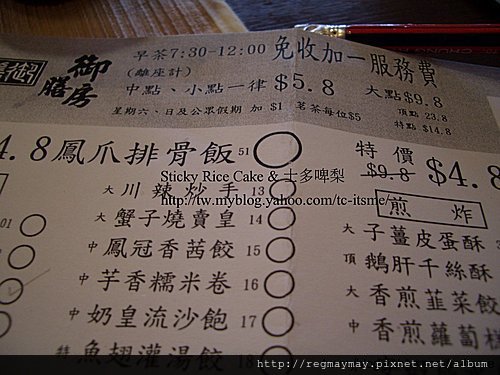 御膳房
早茶7:30-12:00 免收加一服務費
(離座計)
中點、小點一律 $5.8 大點$9.8
頂點 23.8
特點 $14.8
星期六、日及公眾假期 加 $1 茗茶每位$5
4.8鳳爪排骨飯 51
特價
$9.8 $4.8
Sticky Rice Cake & 士多啤梨
http://tw.myblog.yahoo.com/tc-itsme/
大 川辣炒手 13
大 蟹子燒賣皇 14
中 鳳冠香茜餃 15
中 芋香糯米卷 16
中 奶皇流沙飽 17
特 魚翅灌湯餃 18
煎炸
大 子薑皮蛋酥
頂 鵝肝千絲酥
大 香煎韮菜餃
中 香煎蘿蔔糕
http://regmaymay.pixnet.net/album